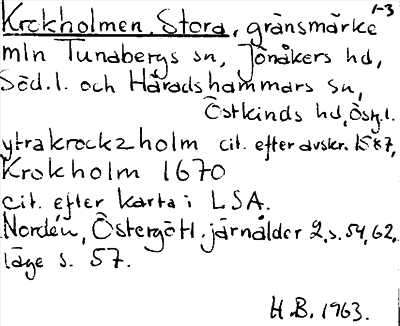 1-3
Krokholmen, Stora, gränsmärke
mln Tunabergs sn, Jönåkers hd,
Söd.l. och Häradshammars sn,
Östkinds hd, Östg.l.
ytrakrockzholm cit. efter avskr. 1587,
Krokholm 1670
cit. efter karta i LSA.
Nordén, Östergötl. järnålder 2, s. 54, 62.
läge s. 57.
H.B. 1963.